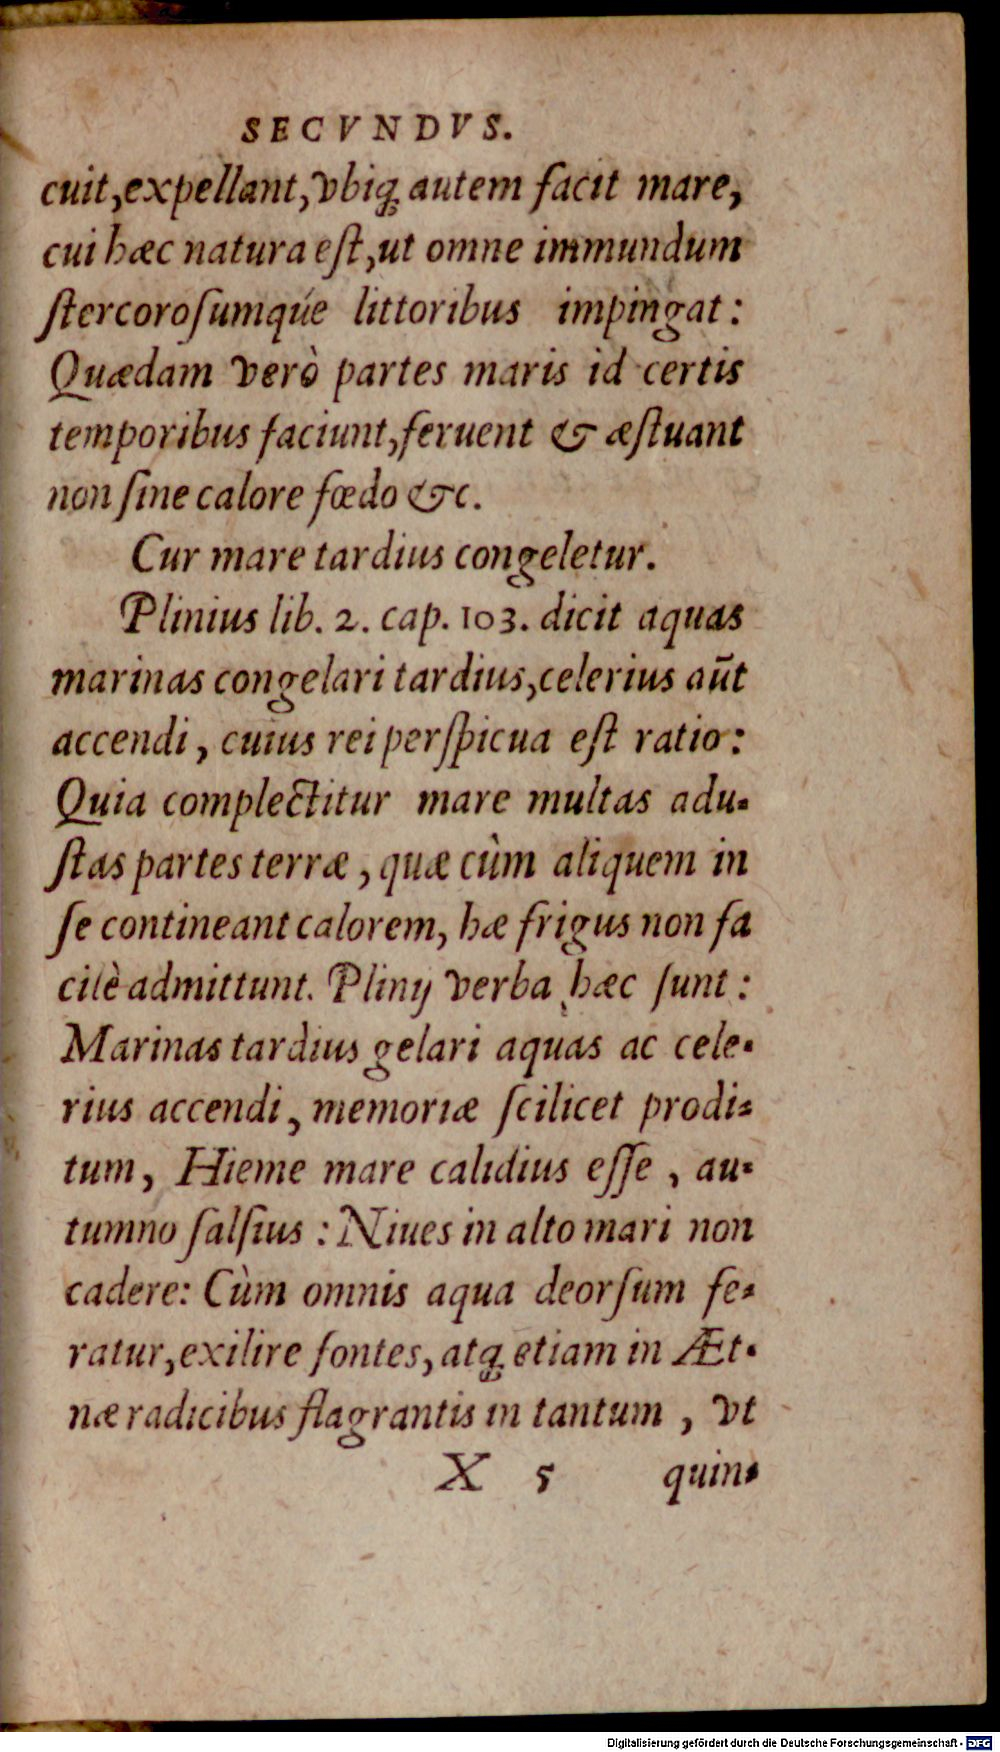 SECVNDVS.
cuit,expellant,vbiq; autem facit mare,
cui hæc natura eſt,ut omne immundum
ſtercoroſumqúe littoribus impingat:
Quædam verò partes maris id certis
temporibus faciunt,feruent & æſtuant
non ſine calore fœdo &c.
Cur mare tardius congeletur.
Plinius lib. 2. cap. 103. dicit aquas
marinas congelari tardius,celerius aūt
accendi, cuius rei perſpicua eſt ratio:
Quia complectitur mare multas adu-
ſtas partes terræ, quæ cùm aliquem in
ſe contineant calorem, hæ frigus non fa
cilè admittunt. Plinij verba hæc ſunt:
Marinas tardius gelari aquas ac cele-
rius accendi, memoriæ ſcilicet prodi-
tum, Hieme mare calidius eſſe, au-
tumno ſalſius: Niues in alto mari non
cadere: Cùm omnis aqua deorſum fe-
ratur,exilire fontes, atq; etiam in Æt-
næ radicibus flagrantis in tantum, vt
X 5 quin-
Digitalisierung gefördert durch die Deutsche Forschungsgemeinschaft - DFG